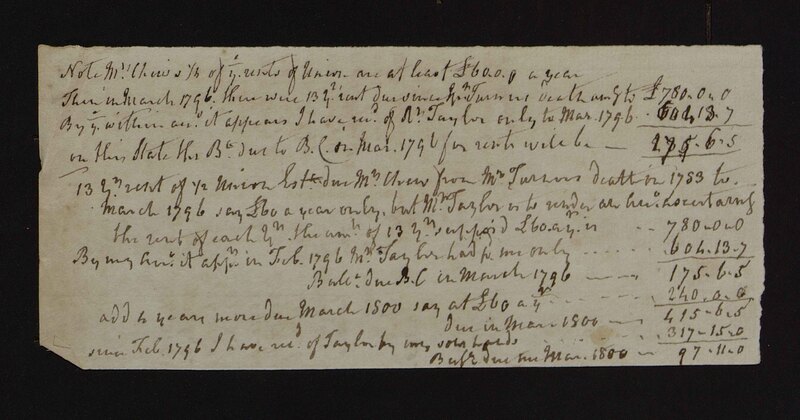 Note Mr. Chew's ½ of ye. rents of Union are at least £60.0.0 a year
Then in March 1796. there were 13 yrs. rent due since Mr. Turner's death amg. to £780-0-0
By ye. within acct. it appears I have recd. of Mr. Taylor only to Mar. 1796 - 604.13-7
on this State the Bce. due to B.C. in Mar. 1796 for rents will be — 175-6-5
13 yrs. rent of ½ Union Este. due Mr. Chew from Mr. Turners death in 1783 to
March 1796 say £60 a year only, but Mr. Taylor is to render an acct. ascertaing
the rent of each yr. the amt. of 13 yrs. suppos'd £60 a yr. is - - 780-0-0
By my acct. it apprs. in Feb. 1796 Mr. Taylor had pd. me only - - 604-13-7
Balce. due B.C in March 1796 - - - 175-6-5
add 4 years more due March 1800 say at £60 a yr. - - - 240-0-0
due in Mar. 1800 - - - 415-6-5
since Feb. 1796 I have recd. of Taylor by my son 317-15-0
Balce. due me Mar. 1800 - - 97-11-0